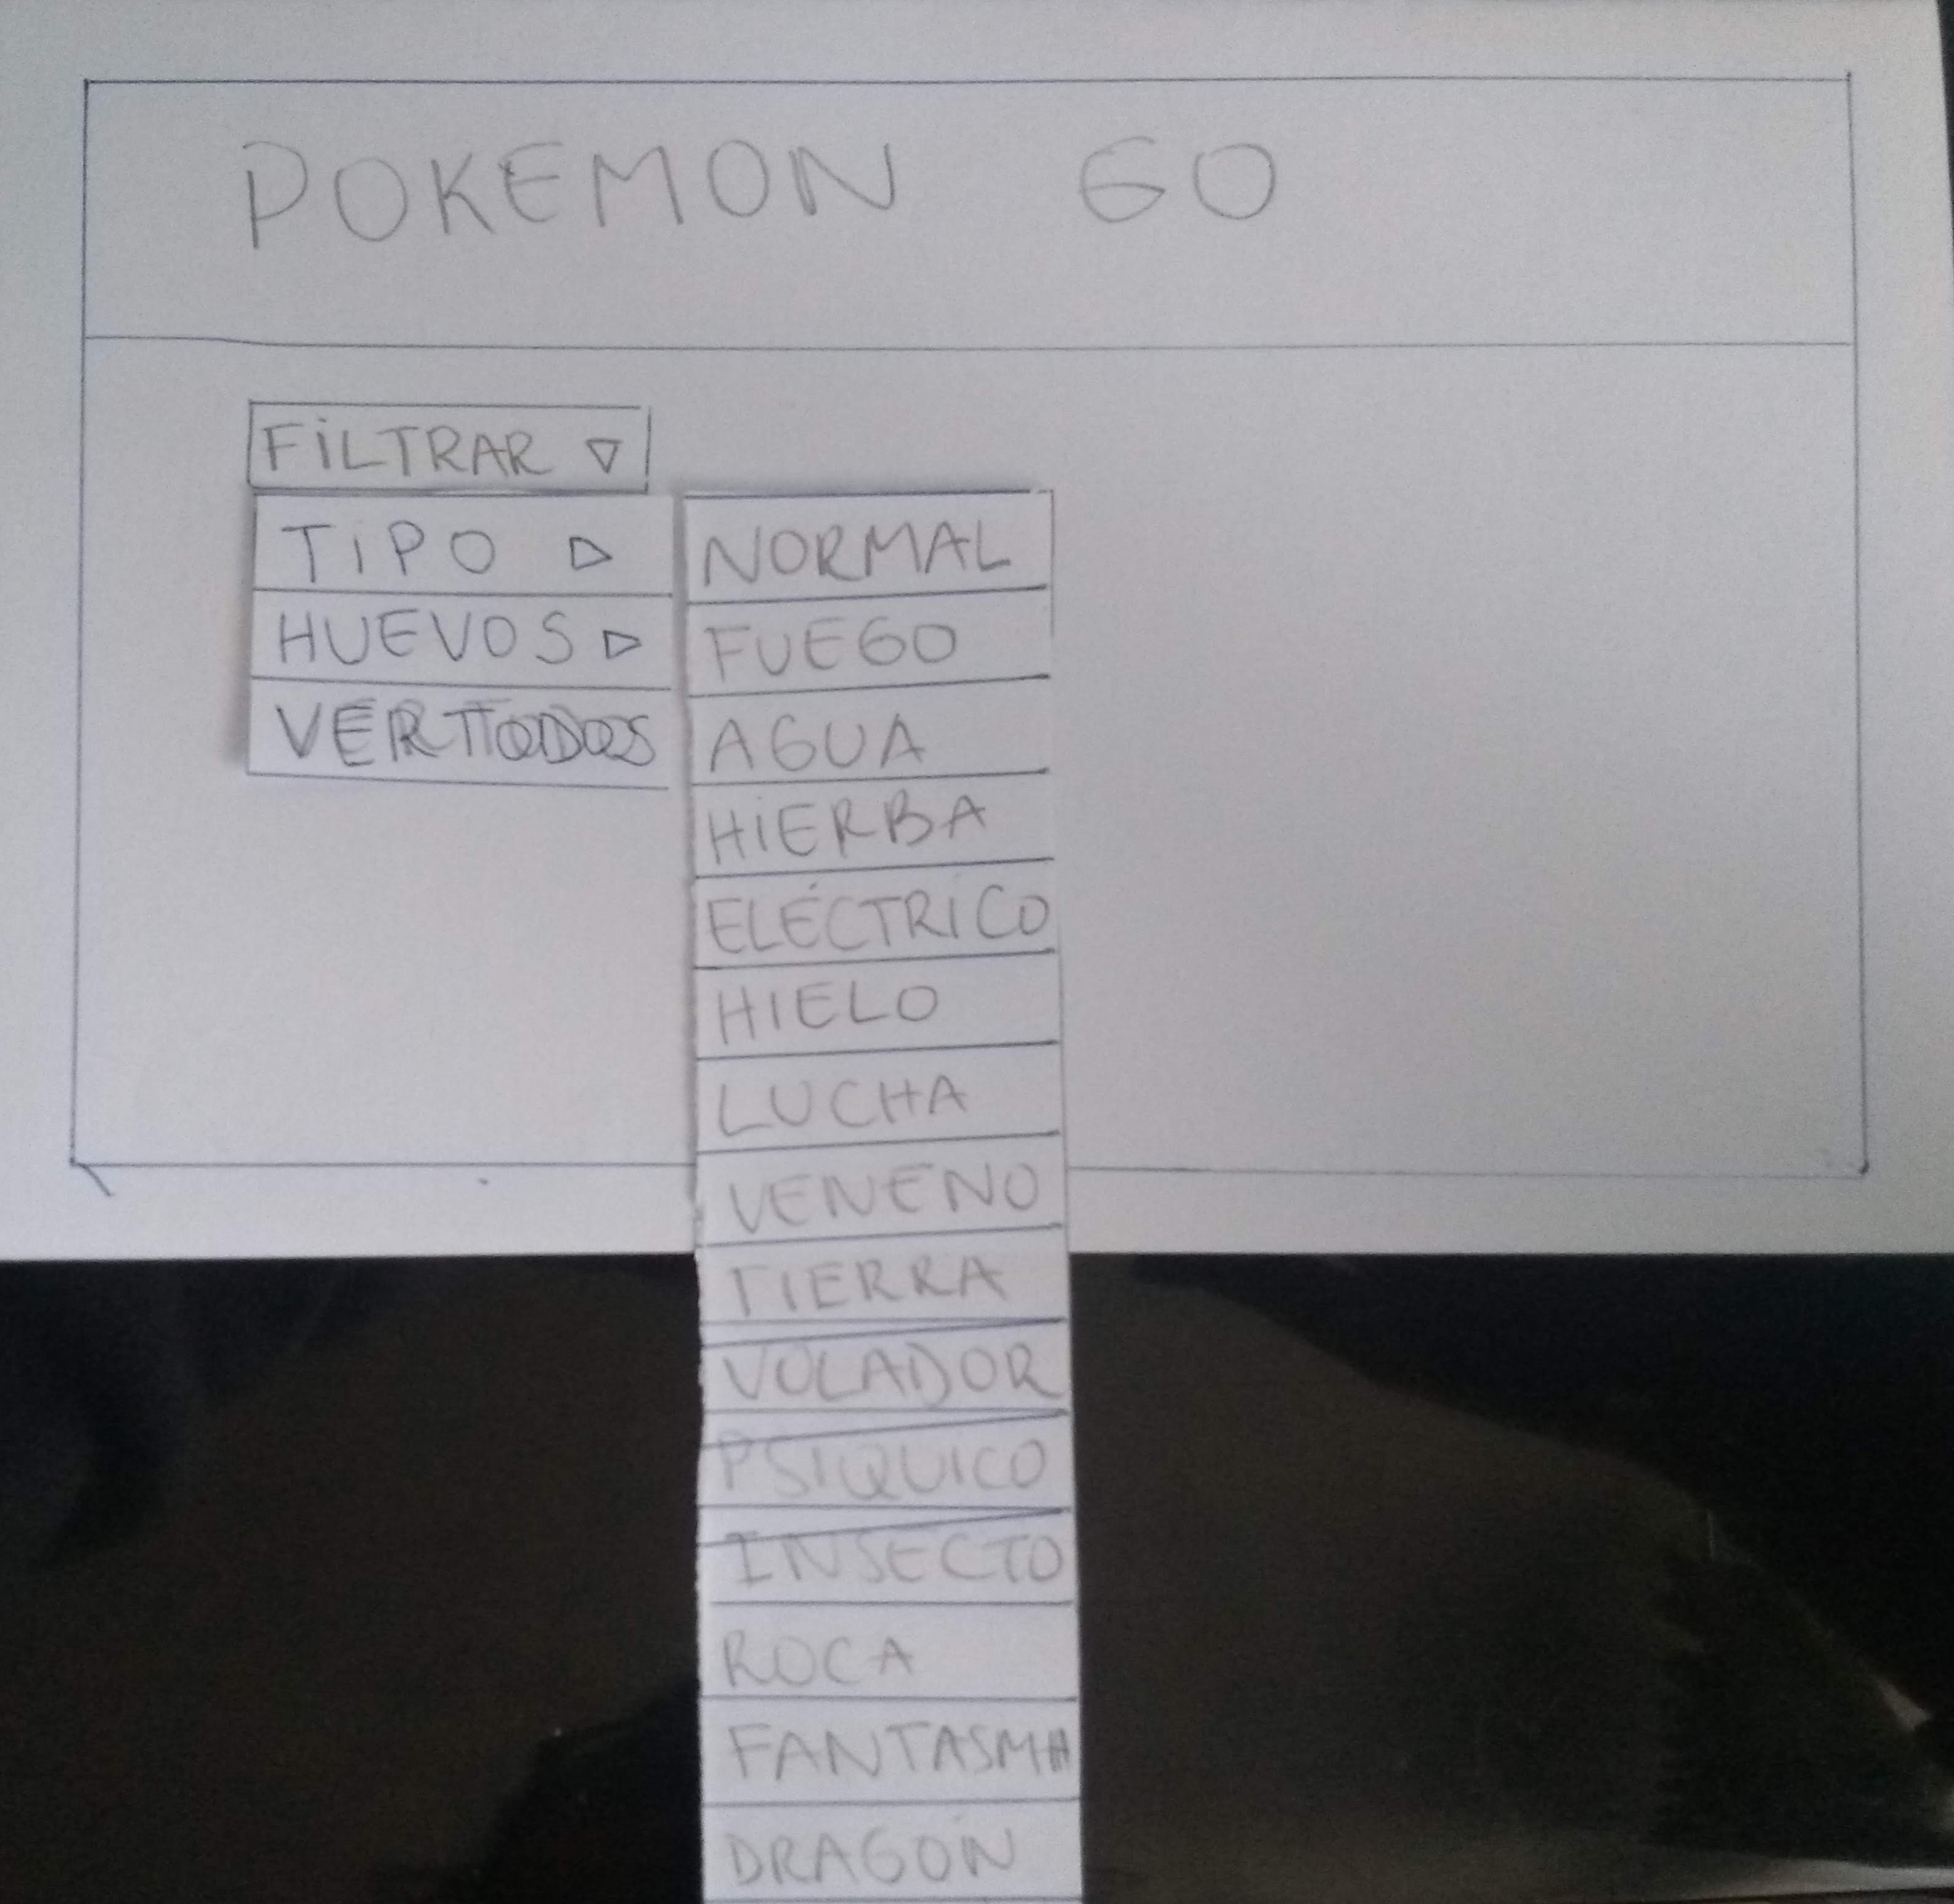 POKEMON GO
FILTRAR
TIPO
HUEVOS
VER TODOS
NORMAL
FUEGO
AGUA
HIERBA
ELÉCTRICO
HIELO
LUCHA
VENENO
TIERRA
VOLADOR
PSIQUICO
INSECTO
ROCA
FANTASMA
DRAGÓN